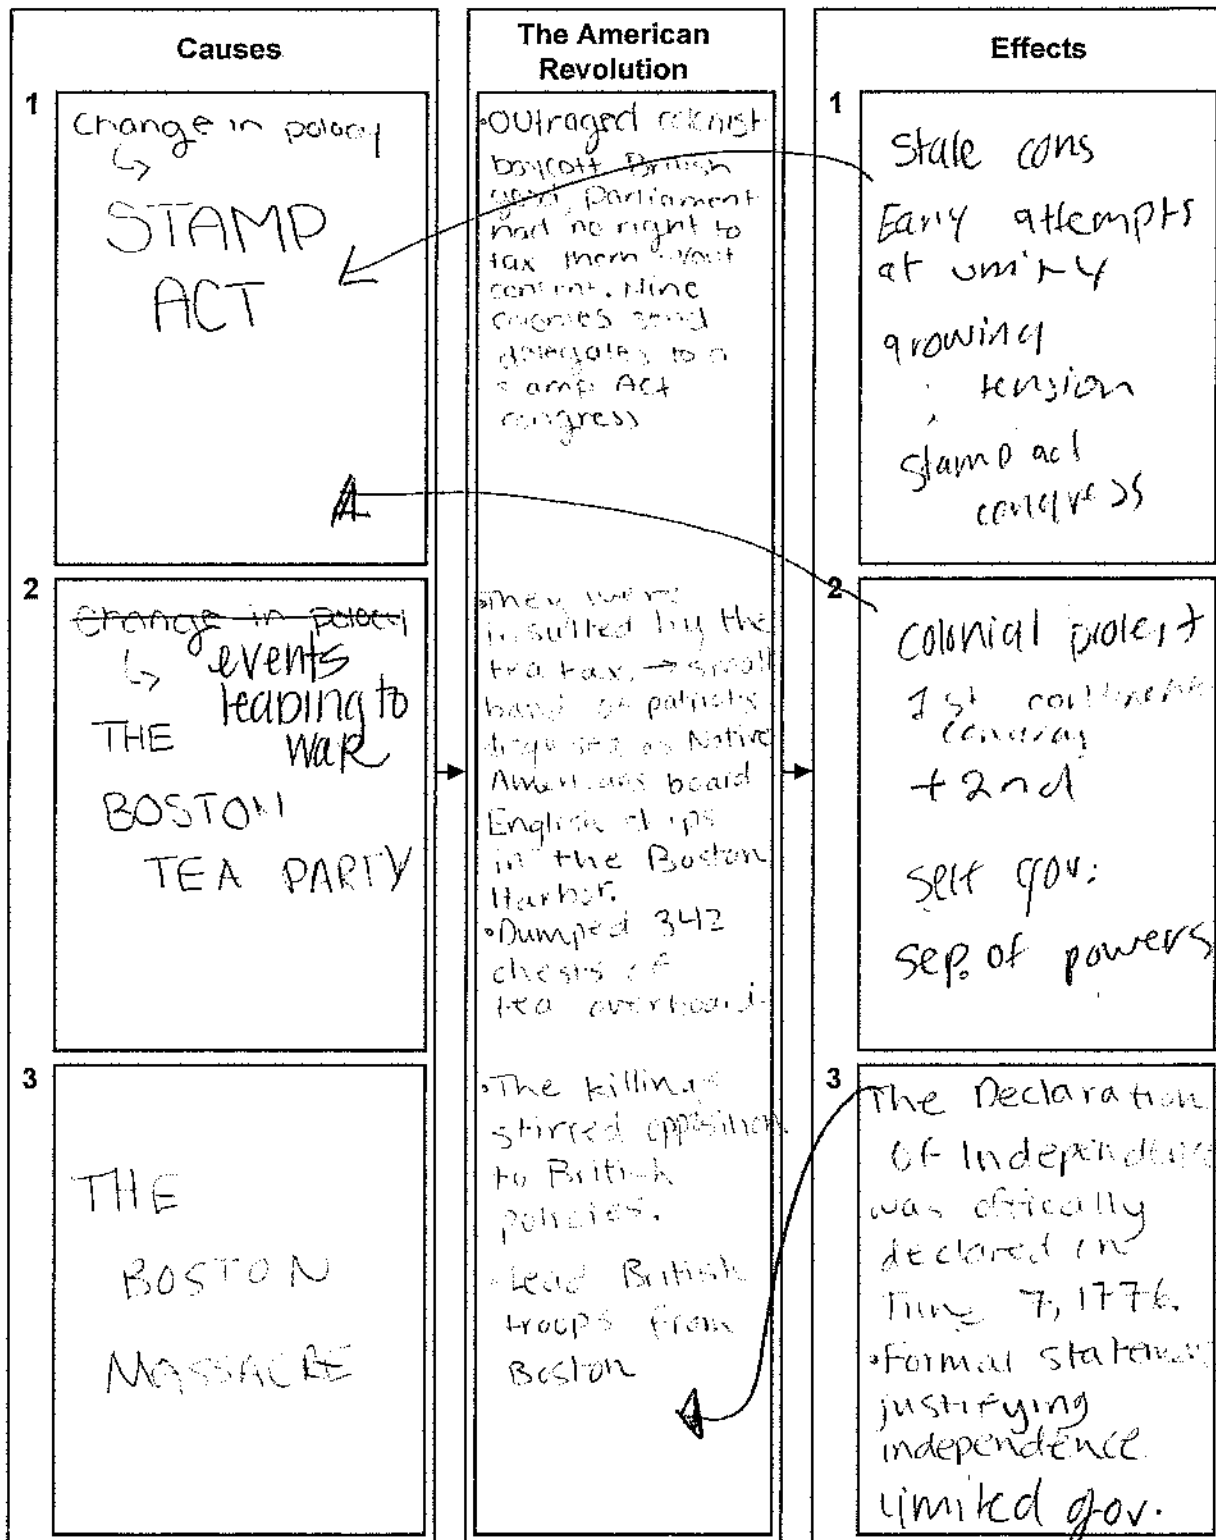 Causes
1
Change in polacy
↳
STAMP
ACT
2
Change in polacy
↳ events
leading to
war
THE
BOSTON
TEA PARTY
3
THE
BOSTON
MASSACRE
The American
Revolution
•Outraged colonist
boycott British
good, Parliament
had no right to
tax them w/out
consent. Nine
colonies send
delegates to a
Stamp Act
congress
•They were
insulted by the
tea tax. → small
band of patriots
disguised as Native
Americans board
English ships
in the Boston
Harbor.
•Dumped 342
chests of
tea overboard.
•The killings
stirred opposition
to British
policies.
•Lead British
troops from
Boston
Effects
1
State cons
Early attempts
at unity
growing
tension
Stamp act
congress
2
colonial protest
1st continental
+ 2nd
self gov.
sep. of powers
3
The Declaration
of Independence
was offically
declared in
June 7, 1776.
•Formal statement
justifying
independence
limited gov.